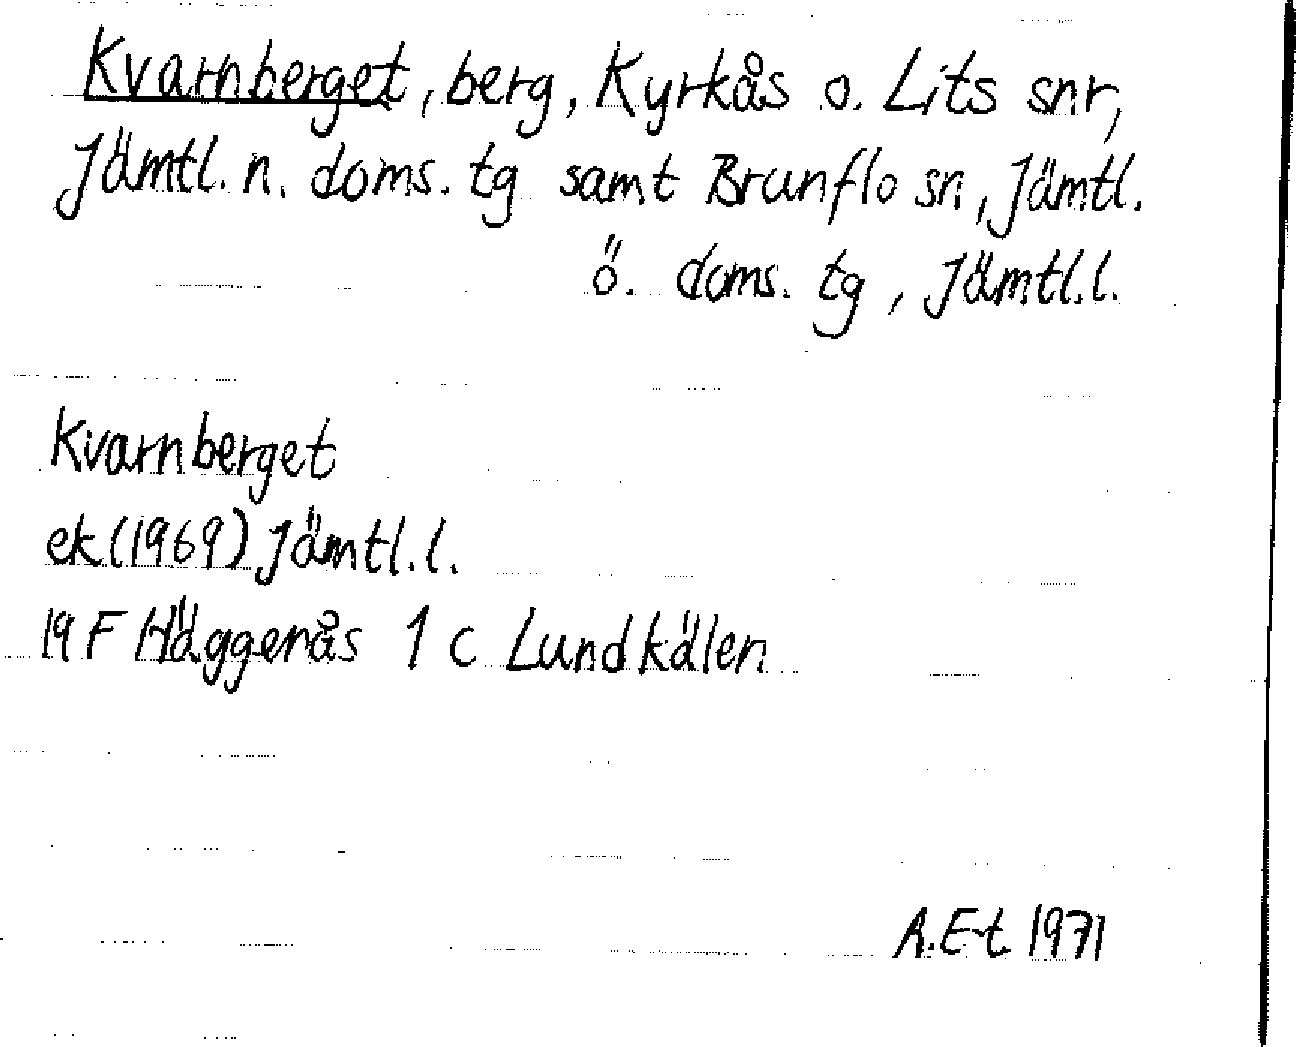 Kvarnberget, berg, Kyrkås o. Lits snr,
Jämtl. n. doms. tg samt Brunflo sn, Jämtl.
ö. doms. tg, Jämtl. l.
Kvarnberget
ek (1969) Jämtl. l.
19 F Häggenås 1 c Lundkälen
A. E-t 1971